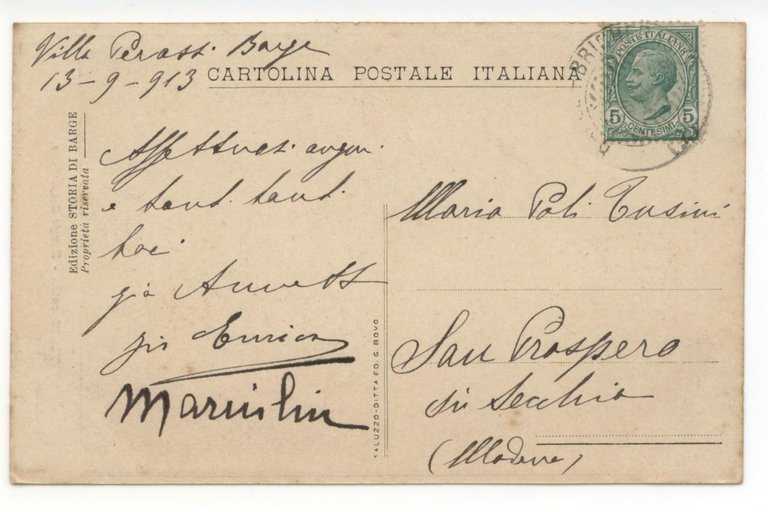 Villa Perassi Barge
13-9-913
CARTOLINA POSTALE ITALIANA
POSTE ITALIANE
5 5
CENTESIMI
Edizione STORIA DI BARGE
Proprietà riservata
Affettuosi auguri
e tanti tanti
baci
Enrica
Maria Poli Tusini
San Prospero
di Secchia
(Modena)
SALUZZO-DITTA ED. G. BOVO